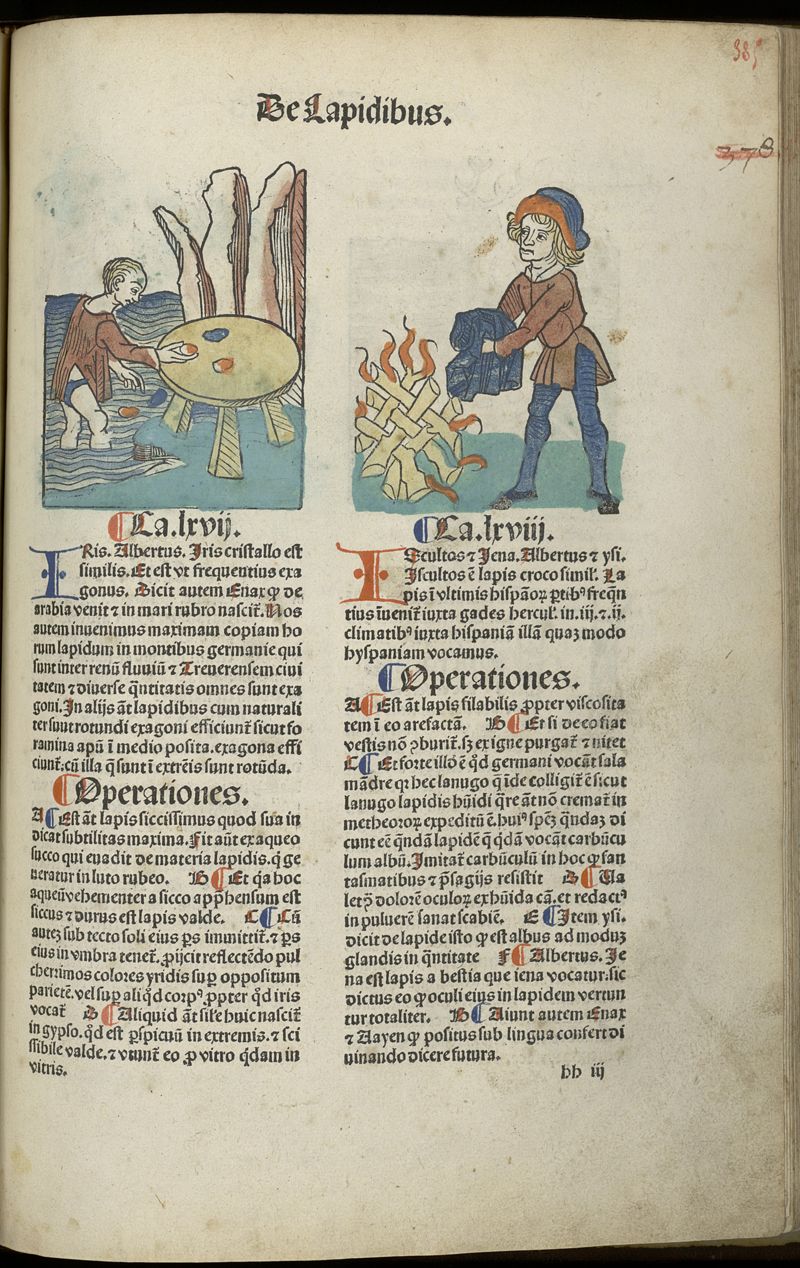 De Lapidibus.
385
378
¶Ca.lxvij.
IRis. Albertus. Iris cristallo est
similis. Et est vt frequentius exa
gonus. Dicit autem Enax ꝙ de
arabia venit ⁊ in mari rubro nascit̄. Nos
autem inuenimus maximam copiam ho
rum lapidum in montibus germanie qui
sunt inter renū fluuiū ⁊ Treuerensem ciui
tatem ⁊ diuerse q̄ntitatis omnes sunt exa
goni. In alijs āt lapidibus cum naturali
ter sunt rotundi exagoni efficiunt̄ sicut fo
ramina apū ī medio posita. exagona effi
ciunt̄: cū illa q̄ sunt ī extrēis sunt rotūda.
¶Operationes.
A ¶Est āt lapis siccissimus quod sua in
dicat subtilitas maxima. Fit aūt ex aqueo
succo qui euadit de materia lapidis. q̄ ge
neratur in luto rubeo. B ¶Et q̇a hoc
aqueū vehementer a sicco app̄hensum est
siccus ⁊ durus est lapis valde. C ¶Cū
autez sub tecto soli eius ꝑs immittit̄. ⁊ ꝑs
eius in vmbra tenet̄. ꝓijcit reflectēdo pul
cherrimos colores yridis suꝑ oppositum
parietē. vel suꝑ aliq̇d corpꝰ. ꝓpter q̇d iris
vocat̄ D ¶Aliquid āt sil'e huic nascit̄
in gypso. q̇d est ꝑspicuū in extremis. ⁊ sci
ssibile valde. ⁊ vtunt̄ eo ꝓ vitro q̇dam in
vitris.
¶Ca.lxviij.
IScultos ⁊ Jena. Albertus ⁊ ysi.
Iscultos ē lapis croco simil'. La
pis ī vltimis hispāoꝝ ꝑtibꝰ freq̄n
tius īuenit̄ iuxta gades hercul'. in .iij. ⁊ .ij.
climatibꝰ iuxta hispaniā illā quaz modo
hyspaniam vocamus.
¶Operationes.
A ¶Est āt lapis filabilis ꝓpter viscosita
tem ī eo arefactā. B ¶Et si de eo fiat
vestis nō ꝯburit̄. sꝫ ex igne purgat̄ ⁊ nitet
C ¶Et forte illō ē q̇d germani vocāt sala
mādre qꝛ hec lanugo q̄ īde colligit̄ ē sicut
lanugo lapidis hūidi q̄re āt nō cremat̄ in
metheoroꝝ expeditū ē. huiꝰ spēꝫ q̄ndaꝫ di
cunt eē q̄ndā lapidē q̄ q̇dā vocāt carbūcu
lum albū. Imitat̄ carbūculū in hoc ꝙ fan
tasmatibus ⁊ p̄sagijs resistit D ¶Ua
let ꝯ̄ dolorē oculoꝝ ex hūida cā. et redactꝰ
in puluerē sanat scabiē. E ¶Item ysi.
dicit de lapide isto ꝙ est albus ad moduꝫ
glandis in q̄ntitate F ¶Albertus. Je
na est lapis a bestia que iena vocatur: sic
dictus eo ꝙ oculi eius in lapidem vertun
tur totaliter. H ¶Aiunt autem Enax
⁊ Aayen ꝙ positus sub lingua confert di
uinando dicere futura.
hh iij